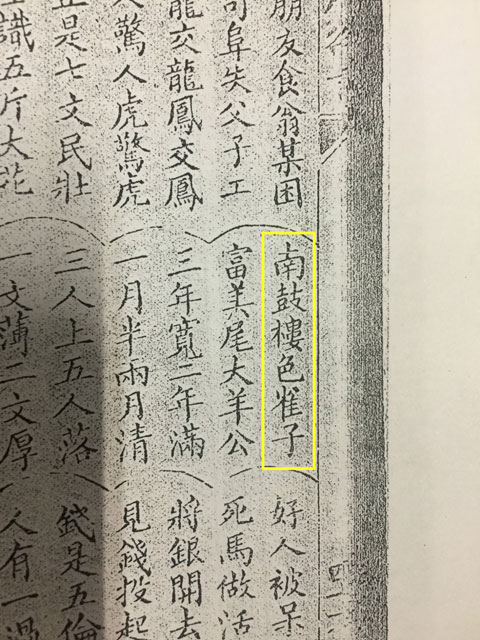 朋友食翁某困
司阜失父子工
龍交龍鳳交鳳
人驚人虎驚虎
正是七文民壯
識五斤大花
南鼓樓色雀子
富美尾大羊公
三年寬二年滿
一月半兩月清
三人上五人落
一文薄二文厚
好人被呆
死馬做活
將銀開去
見錢投起
錢是五倫
人有一過